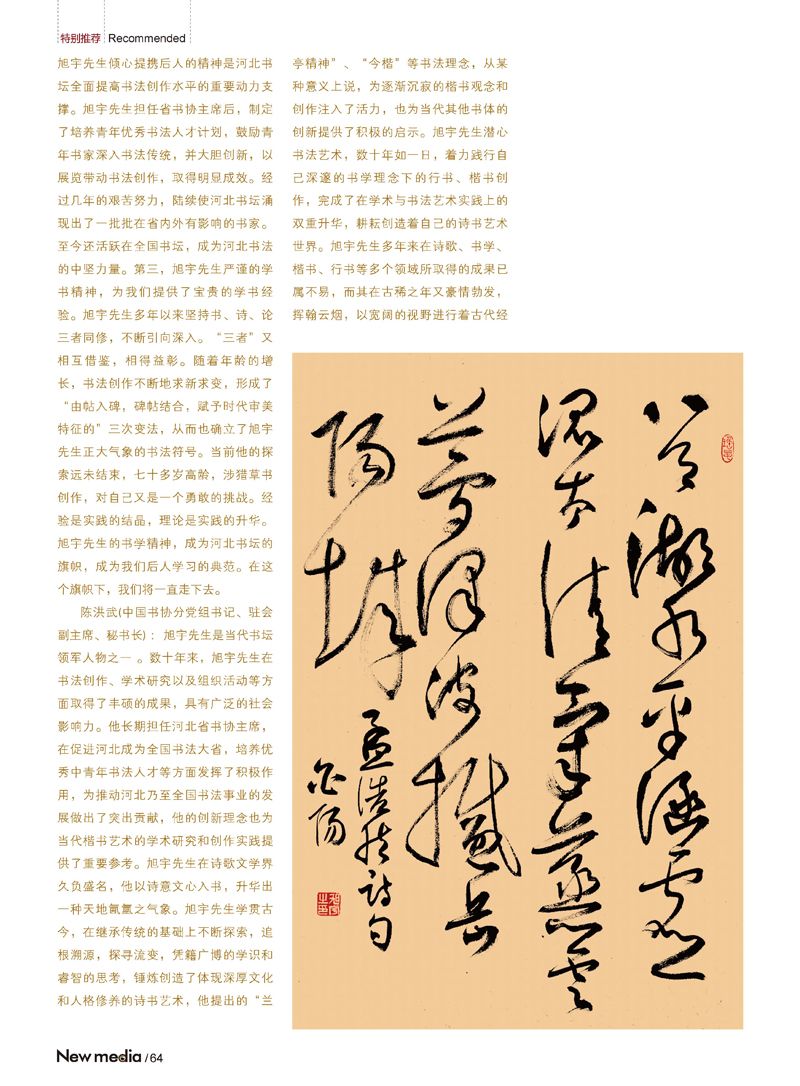 特别推荐 Recommended
旭宇先生倾心提携后人的精神是河北书
坛全面提高书法创作水平的重要动力支
撑。旭宇先生担任省书协主席后，制定
了培养青年优秀书法人才计划，鼓励青
年书家深入书法传统，并大胆创新，以
展览带动书法创作，取得明显成效。经
过几年的艰苦努力，陆续使河北书坛涌
现出了一批批在省内外有影响的书家。
至今还活跃在全国书坛，成为河北书法
的中坚力量。第三，旭宇先生严谨的学
书精神，为我们提供了宝贵的学书经
验。旭宇先生多年以来坚持书、诗、论
三者同修，不断引向深入。“三者”又
相互借鉴，相得益彰。随着年龄的增
长，书法创作不断地求新求变，形成了
“由帖入碑，碑帖结合，赋予时代审美
特征的”三次变法，从而也确立了旭宇
先生正大气象的书法符号。当前他的探
索远未结束，七十多岁高龄，涉猎草书
创作，对自己又是一个勇敢的挑战。经
验是实践的结晶，理论是实践的升华。
旭宇先生的书学精神，成为河北书坛的
旗帜，成为我们后人学习的典范。在这
个旗帜下，我们将一直走下去。
陈洪武(中国书协分党组书记、驻会
副主席、秘书长)：旭宇先生是当代书坛
领军人物之一 。数十年来，旭宇先生在
书法创作、学术研究以及组织活动等方
面取得了丰硕的成果，具有广泛的社会
影响力。他长期担任河北省书协主席，
在促进河北成为全国书法大省，培养优
秀中青年书法人才等方面发挥了积极作
用，为推动河北乃至全国书法事业的发
展做出了突出贡献，他的创新理念也为
当代楷书艺术的学术研究和创作实践提
供了重要参考。旭宇先生在诗歌文学界
久负盛名，他以诗意文心入书，升华出
一种天地氤氲之气象。旭宇先生学贯古
今，在继承传统的基础上不断探索，追
根溯源，探寻流变，凭籍广博的学识和
睿智的思考，锤炼创造了体现深厚文化
和人格修养的诗书艺术，他提出的“兰
亭精神”、“今楷”等书法理念，从某
种意义上说，为逐渐沉寂的楷书观念和
创作注入了活力，也为当代其他书体的
创新提供了积极的启示。旭宇先生潜心
书法艺术，数十年如一日，着力践行自
己深邃的书学理念下的行书、楷书创
作，完成了在学术与书法艺术实践上的
双重升华，耕耘创造着自己的诗书艺术
世界。旭宇先生多年来在诗歌、书学、
楷书、行书等多个领域所取得的成果已
属不易，而其在古稀之年又豪情勃发，
挥翰云烟，以宽阔的视野进行着古代经
八月湖水平涵虚
混太清气蒸云
梦泽波撼岳
阳城
孟浩然诗句
New media / 64